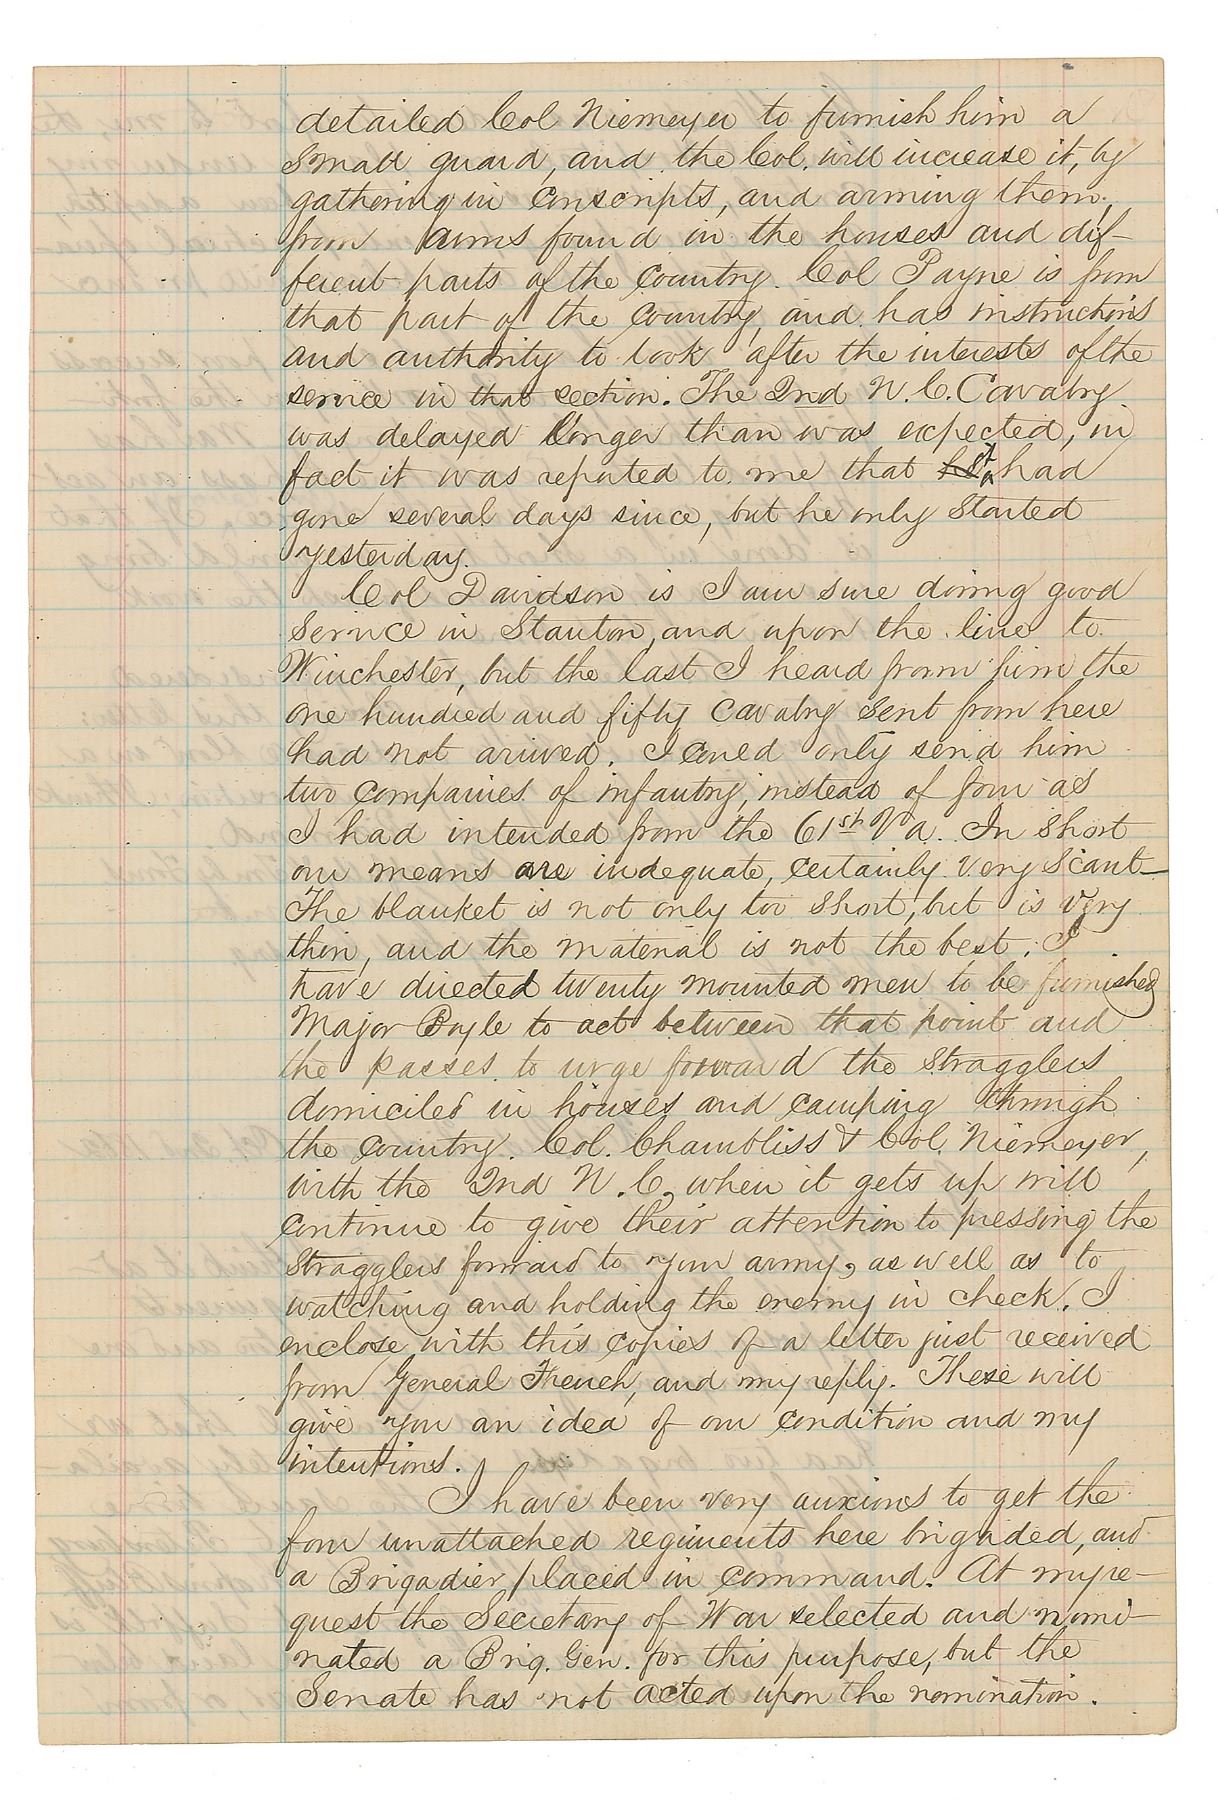 detailed Col Niemeyer to furnish him a
small guard, and the Col. will increase it, by
gathering in Conscripts, and arming them,
from arms found in the houses and dif-
ferent parts of the Country. Col Payne is from
that part of the Country, and has instructions
and authority to look after the interests of the
service in that section. The 2nd N. C. Cavalry
was delayed longer than was expected, in
fact it was reported to me that it had
gone several days since, but he only Started
yesterday.
Col Davidson is I am sure doing good
Service in Stanton, and upon the line to
Winchester, but the last I heard from him the
one hundred and fifty Cavalry Sent from here
had not arived. I coued only send him
two Companies of infantry, instead of four as
I had intended from the 61st Va. In Short
our means are indequate, certainly very Scant—
The blanket is not only too Short, but is very
thin, and the material is not the best. I
have directed twenty mounted men to be furnished
Major Boyle to act between that point and
the passes to urge forward the Stragglers
domiciled in houses and camping through
the Country. Col. Chambliss & Col. Niemeyer,
with the 2nd N. C, when it gets up will
Continue to give their attention to pressing the
Stragglers forward to your army, as well as to
watching and holding the enemy in check. I
enclose with this copies of a letter just received
from General French, and my reply. These will
give you an idea of our Condition and my
intentions.
I have been very anxious to get the
four unattached regiments here brigaded, and
a Brigadier placed in Command. At my re-
quest the Secretary of War selected and nomi-
nated a Brig. Gen. for this purpose, but the
Senate has not acted upon the nomination.